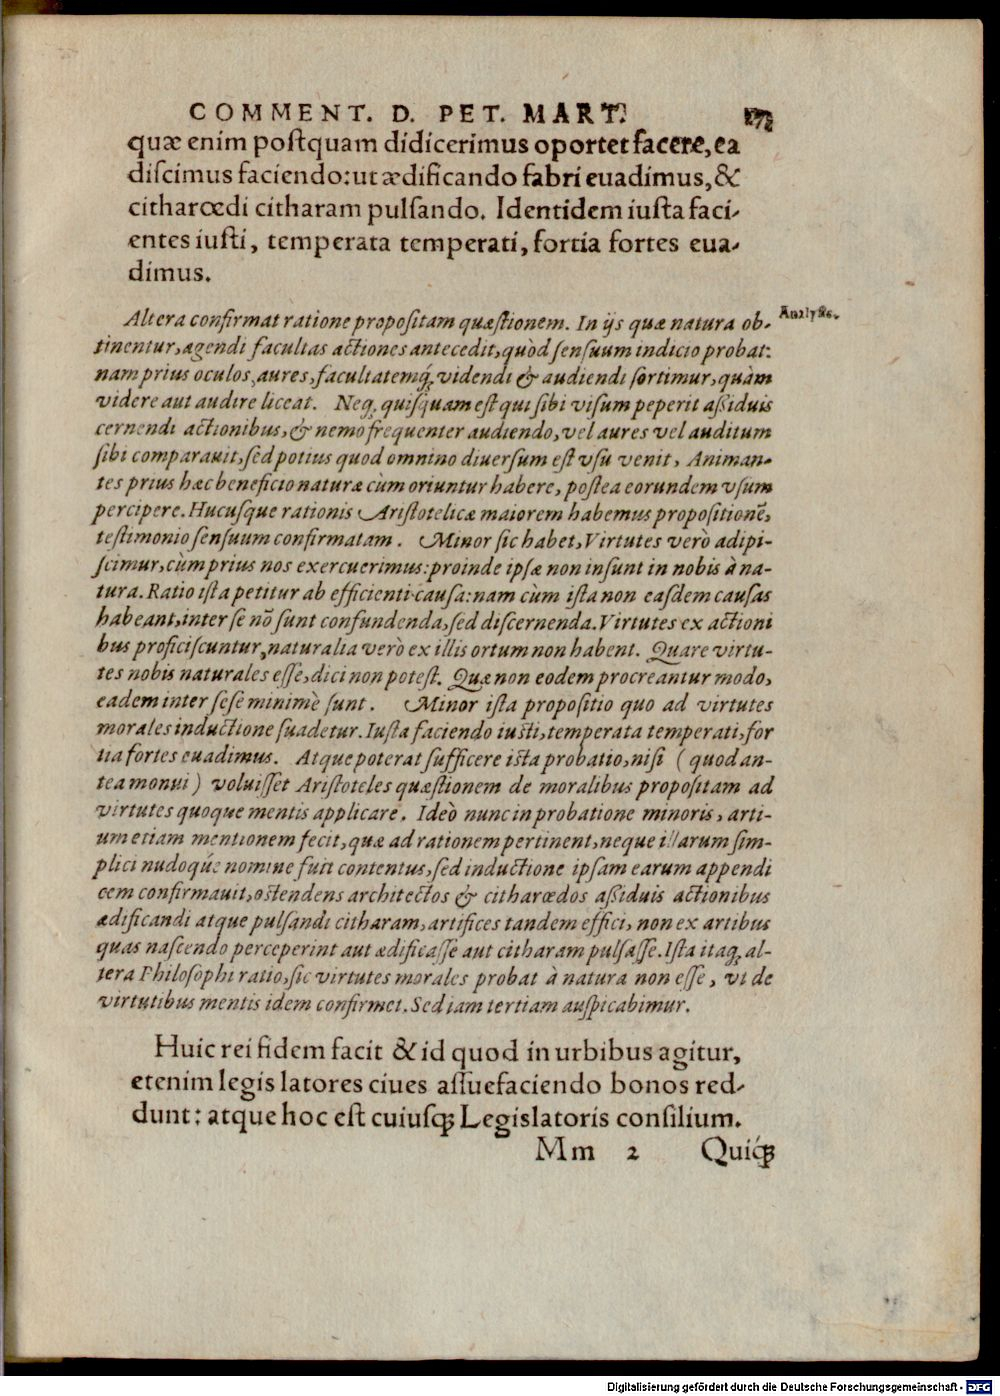 COMMENT. D. PET. MART.
quæ enim postquam didicerimus oportet facere, ea
discimus faciendo: ut ædificando fabri euadimus, &
citharœdi citharam pulsando. Identidem iusta faci-
entes iusti, temperata temperati, fortia fortes eua-
dimus.
Altera confirmat ratione propositam quæstionem. In ijs quæ natura ob-
Analysis.
tinentur, agendi facultas actiones antecedit, quòd sensuum indicio probat:
nam prius oculos, aures, facultatemq; videndi & audiendi sortimur, quàm
videre aut audire liceat. Neq; quisquam est qui sibi visum peperit aßiduis
cernendi actionibus, & nemo frequenter audiendo, vel aures vel auditum
sibi comparauit, sed potius quod omnino diuersum est vsu venit, Animan-
tes prius hæc beneficio naturæ cùm oriuntur habere, postea eorundem vsum
percipere. Hucusque rationis Aristotelicæ maiorem habemus propositionẽ,
testimonio sensuum confirmatam. Minor sic habet, Virtutes verò adipi-
scimur, cùm prius nos exercuerimus: proinde ipsæ non insunt in nobis à na-
tura. Ratio ista petitur ab efficienti causa: nam cùm ista non easdem causas
habeant, inter se nõ sunt confundenda, sed discernenda. Virtutes ex actioni
bus proficiscuntur, naturalia verò ex illis ortum non habent. Quare virtu-
tes nobis naturales esse, dici non potest. Quæ non eodem procreantur modo,
eadem inter sese minimè sunt. Minor ista propositio quo ad virtutes
morales inductione suadetur. Iusta faciendo iusti, temperata temperati, for
tia fortes euadimus. Atque poterat sufficere ista probatio, nisi (quod an-
tea monui) voluisset Aristoteles quæstionem de moralibus propositam ad
virtutes quoque mentis applicare. Ideò nunc in probatione minoris, arti-
um etiam mentionem fecit, quæ ad rationem pertinent, neque illarum sim-
plici nudoqúe nomine fuit contentus, sed inductione ipsam earum appendi
cem confirmauit, ostendens architectos & citharœdos aßiduis actionibus
ædificandi atque pulsandi citharam, artifices tandem effici, non ex artibus
quas nascendo perceperint aut ædificasse aut citharam pulsasse. Ista itaq; al-
tera Philosophi ratio, sic virtutes morales probat à natura non esse, vt de
virtutibus mentis idem confirmet. Sed iam tertiam auspicabimur.
Huic rei fidem facit & id quod in urbibus agitur,
etenim legis latores ciues assuefaciendo bonos red-
dunt: atque hoc est cuiusq; Legislatoris consilium.
Mm 2 Quiq́;
Digitalisierung gefördert durch die Deutsche Forschungsgemeinschaft - DFG